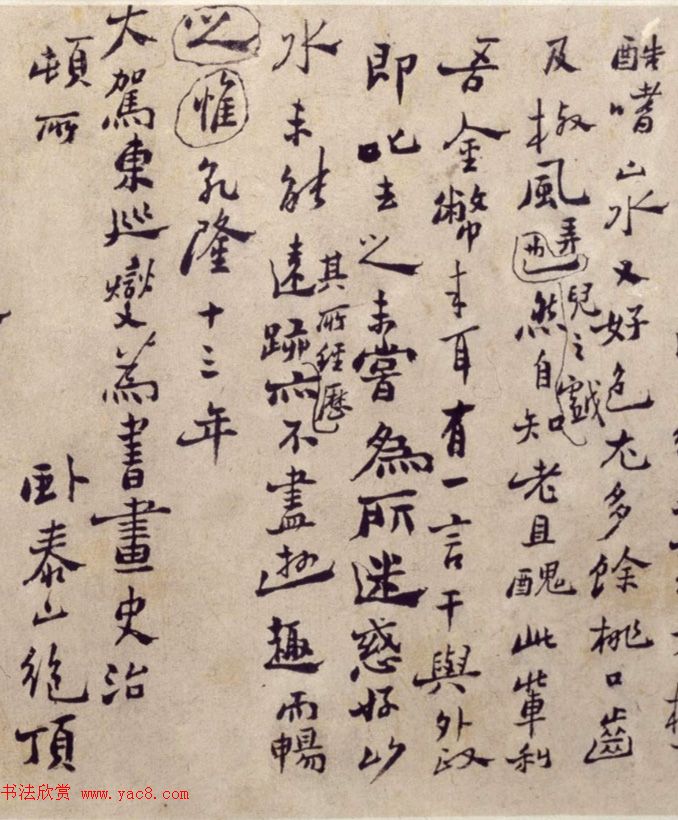 酷嗜山水又好色尤多餘桃口齒
及椒風弄兒之戲然自知老且醜此輩利
吾金幣来耳有一言干與外政
即叱去之未嘗為所迷惑好山
水未能遠跡其所經歷亦不盡遊趣而暢
之惟乾隆十三年
大駕東巡燮為書畫史治
頓所
卧泰山絶頂
书法欣赏 www.yac8.com